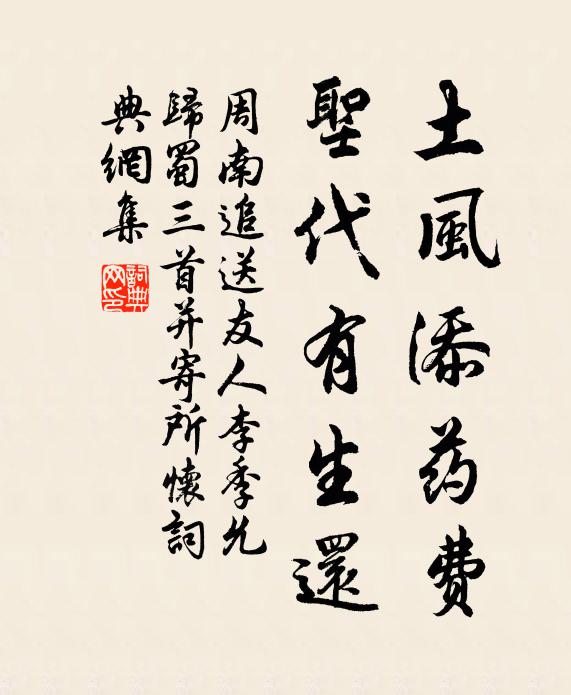 土風添药費
聖代有生還
周南追送友人李季允
歸蜀三首并寄所懷詞
典網集
詞典网印